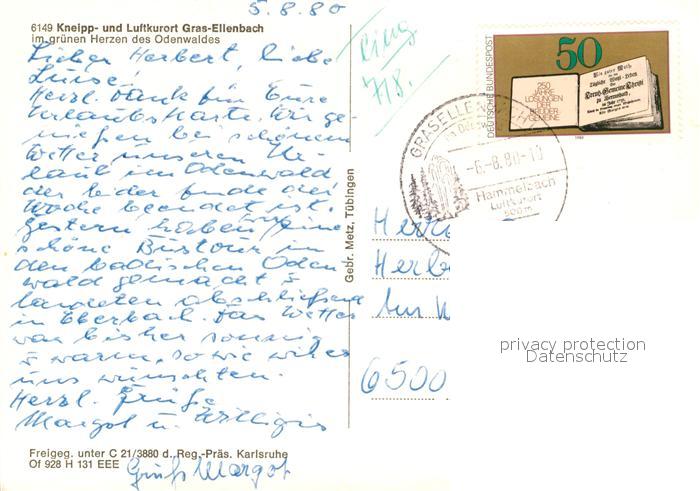 5.8.80
6149 Kneipp- und Luftkurort Gras-Ellenbach
im grünen Herzen des Odenwaldes
Lieber Herbert, liebe
Luise!
Herzl. Dank für Eure
Urlaubskarte. Wir ge-
nießen bei schönem
Wetter unseren Ur-
laub im Odenwald
der leider Ende der
Woche beendet ist.
Gestern haben wir eine
schöne Bustour in
den badischen Oden
wald gemacht u
landeten abschließend
in Eberbach. Das Wetter
war bisher sonnig
u warm, so wie wir es
uns wünschten.
Herzl. Grüße
Margot u. Willigis
Freigeg. unter C 21/3880 d. Reg.-Präs. Karlsruhe
Of 928 H 131 EEE
Gruß Margot
Gebr. Metz, Tübingen
eing
7/8.
DEUTSCHE BUNDESPOST
50
250
JAHRE
LOSUNGEN
DER
BRÜDER
GEMEINE
1980
GRASELLENBACH
-6.-8.80-10
Hammelbach
Luftkurort
Herr
Herb
6500
privacy protection
Datenschutz